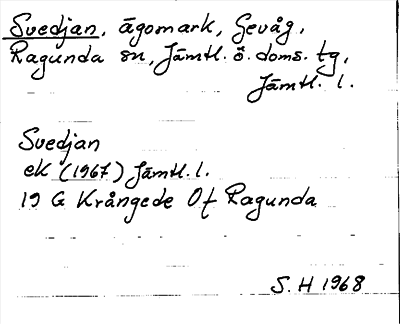 Svedjan, ägomark, Gevåg,
Ragunda sn, Jämtl. ö. doms. tg,
Jämtl. l.
Svedjan
ek (1967) Jämtl. l.
19 G Krångede Of Ragunda
S. H 1968